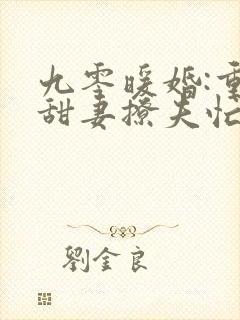 九零暖婚:重
甜妻撩夫忙
劉金良